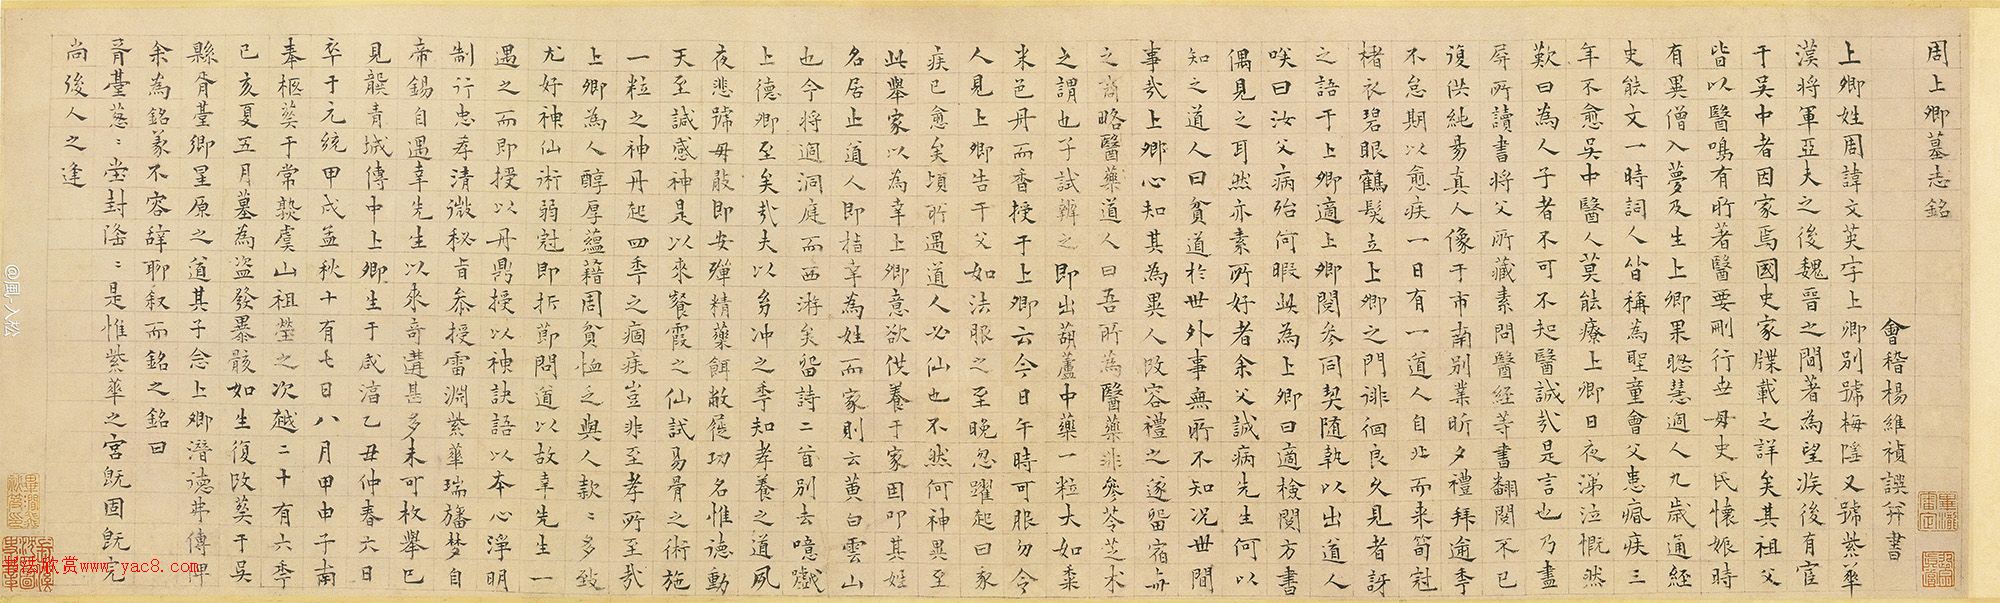 周上卿墓志銘
會稽楊維禎譔并書
上卿姓周諱文英字上卿別號梅隱又號紫華
漢將軍亞夫之後魏晉之間著為望族後有宦
于吳中者因家焉國史家牒載之詳矣其祖父
皆以醫鳴有所著醫要刪行世母史氏懷娠時
有異僧入夢及生上卿果聰慧過人九歲通經
史能文一時詞人皆稱為聖童會父患痼疾三
年不愈吳中醫人莫能療上卿日夜涕泣慨然
歎曰為人子者不可不知醫誠哉是言也乃盡
屏所讀書將父所藏素問醫經等書翻閱不已
復供純昜真人像于市南別業昕夕禮拜逾季
不怠期以愈疾一日有一道人自北而來筍冠
楮衣碧眼鶴髮立上卿之門徘徊良久見者訝
之語于上卿適上卿閱參同契随執以出道人
唉曰汝父病殆何暇此為上卿曰適檢閱方書
偶見之耳然亦素所好者余父誠病先生何以
知之道人曰貧道於世外事無所不知况世間
事哉上卿心知其為異人改容禮之遂留宿亦
之 略醫藥道人曰吾所為醫藥非參苓芝术
之謂也子試辨之即出葫蘆中藥一粒大如黍
米色丹而香授于上卿云今日午時可服勿令
人見上卿告于父如法服之至晚忽躍起曰家
疾已愈矣頃所遇道人必仙也不然何神異至
此舉家以為幸上卿意欲供養于家因叩其姓
名居止道人即指幸為姓而家則云黃白雲山
也今將過洞庭而西游矣留詩二首別去噫戲
上德卿至矣哉夫以身冲之季知孝養之道夙
夜悲號毋敢即安殫精藥餌敝屣功名惟德動
天至諴感神是以來餐霞之仙試昜骨之術施
一粒之神丹起四季之痼疾豈非至孝所至哉
上卿為人醇厚蘊籍周貧恤乏與人款〻多致
尤好神仙術弱冠即折節問道以故幸先生一
遇之而即授以丹鼎授以神訣語以本心淨明
制行忠孝清微秘旨叅授雷淵紫華瑞旛梦自
帝錫自遇幸先生以來奇遘甚多未可枚舉已
見龔青城傳中上卿生于咸淳乙丑仲春六日
卒于元統甲戌孟秋十有七日八月甲申子南
奉柩葬于常熟虞山祖塋之次越二十有六季
己亥夏五月墓為盜發暴骸如生復改葬于吳
縣胥臺鄉星原之道其子念上卿潛德弗傳俾
余為銘義不容辞聊叙而銘之銘曰
胥臺蔥〻堂封隆〻是惟紫華之宮既固既完
尚後人之逢
@風入松
书法欣赏www.yac8.com